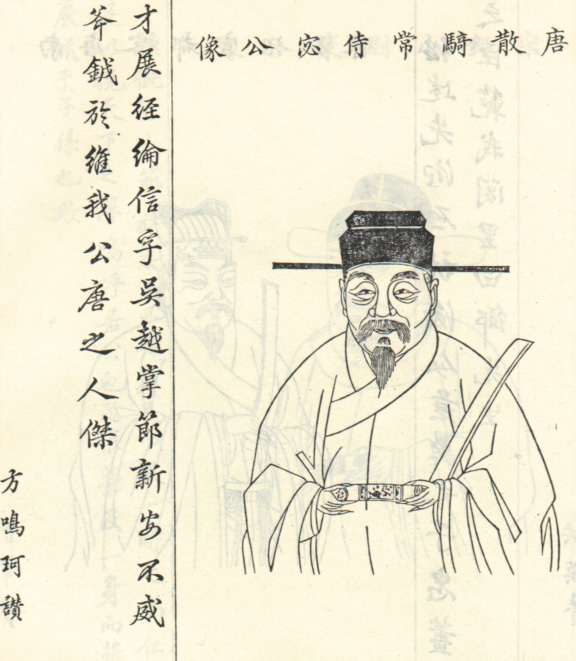 唐散騎常侍宓公像
才展経綸信孚吳越掌節新安不威
斧鉞於維我公唐之人傑
方鳴珂讃